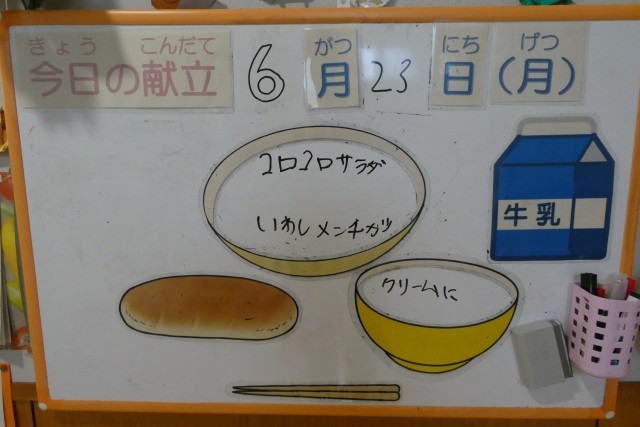 きょう こんだて がつ にち げつ
今日の献立 6 月 23 日 (月)
コロコロサラダ
いわしメンチカツ
牛乳
クリームに